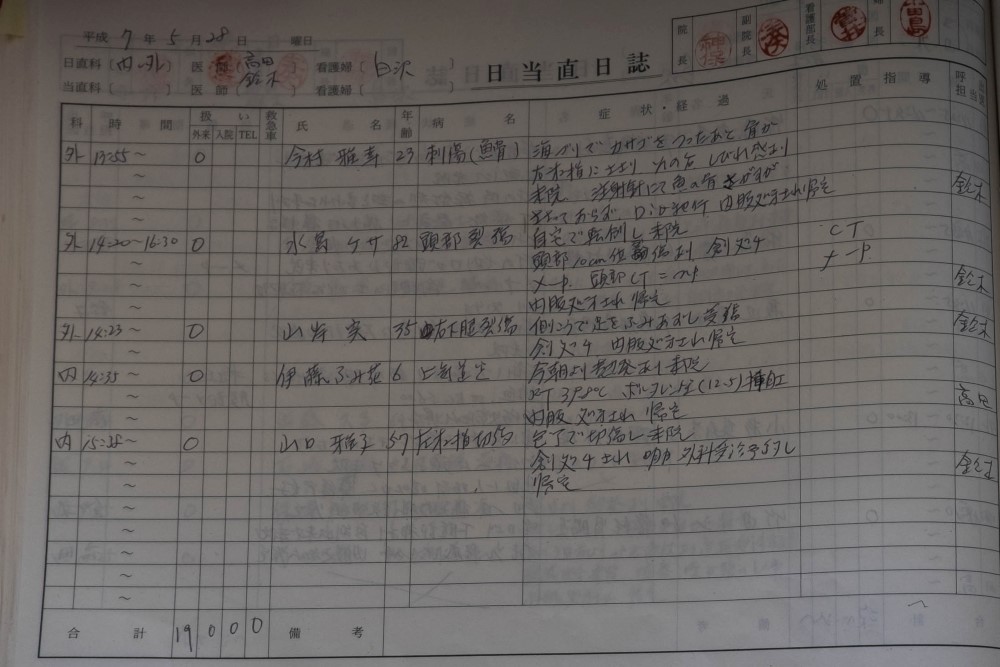 平成 7 年 5 月 28 日 曜日
院長 副院長 看護部長
日直科〔内・外〕 医師〔高田 鈴木〕 看護婦〔白沢〕
当直科〔 〕 医師〔 〕 看護婦〔 〕
日当直日誌
科 時間 扱い 外来 入院 TEL 救急車 氏名 年齢 病名 症状・経過 処置指導 呼出担当
外 13:55〜 0 今村 雅 23 刺傷(魚骨) 海づりでカサゴをつったあと骨が
左 指に しびれ感あり
来院 注射針にて魚の骨さがすが
内服処方され帰宅 鈴木
外 14:20〜16:30 0 水 ケサ 82 頭部裂傷 自宅で転倒し来院 CT
頭部10cm位 傷あり 創処4 ナート
ナート 頭部CT=
内服処方され 帰宅 鈴木
外 14:23〜 0 山岸 実 35 右下腿裂傷 側こうで足をふみはずし受傷 鈴木
創処4 内服処方され 帰宅
内 14:35〜 0 伊藤 ふみ 6 上気道炎 今朝より発熱あり来院
KT 39.8℃ ボルタレン (12.5) 挿肛
内服処方され 帰宅 高田
内 15:38〜 0 山口 雅子 57 左 指切傷 包丁で切傷し来院
創処4され 明日 外科受診予約し 鈴木
帰宅
合計 19 0 0 0 備考